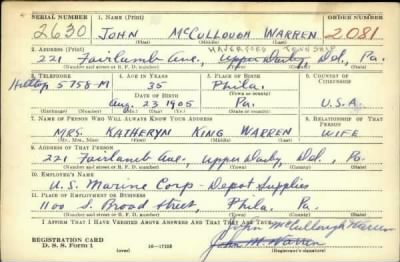 SERIAL NUMBER 1. NAME (Print) ORDER NUMBER
2630 JOHN McCULLOUGH WARREN 2081
(First) (Middle) (Last)
HAVERFORD TOWNSHIP
2. ADDRESS (Print)
221 Fairlamb Ave., Upper Darby, Del., Pa.
(Number and street or R. F. D. number) (Town) (County) (State)
3. TELEPHONE 4. AGE IN YEARS 5. PLACE OF BIRTH 6. COUNTRY OF CITIZENSHIP
Hilltop 5758-M 35 Phila.
DATE OF BIRTH (Town or county)
Aug. 23 1905 Pa. U.S.A.
(Mo.) (Day) (Yr.) (State or country)
7. NAME OF PERSON WHO WILL ALWAYS KNOW YOUR ADDRESS 8. RELATIONSHIP OF THAT PERSON
MRS. KATHERYN KING WARREN WIFE
(Mr., Mrs., Miss) (First) (Middle) (Last)
9. ADDRESS OF THAT PERSON
221 Fairlamb Ave., Upper Darby, Del., Pa.
(Number and street or R. F. D. number) (Town) (County) (State)
10. EMPLOYER'S NAME
U.S. Marine Corp - Depot Supplies
11. PLACE OF EMPLOYMENT OR BUSINESS
1100 S. Broad Street, Phila. Pa.
(Number and street or R. F. D. number) (Town) (County) (State)
I AFFIRM THAT I HAVE VERIFIED ABOVE ANSWERS AND THAT THEY ARE TRUE.
John McCullough Warren
REGISTRATION CARD John M Warren
D. S. S. Form 1 (over) 16-17105 (Registrant's signature)